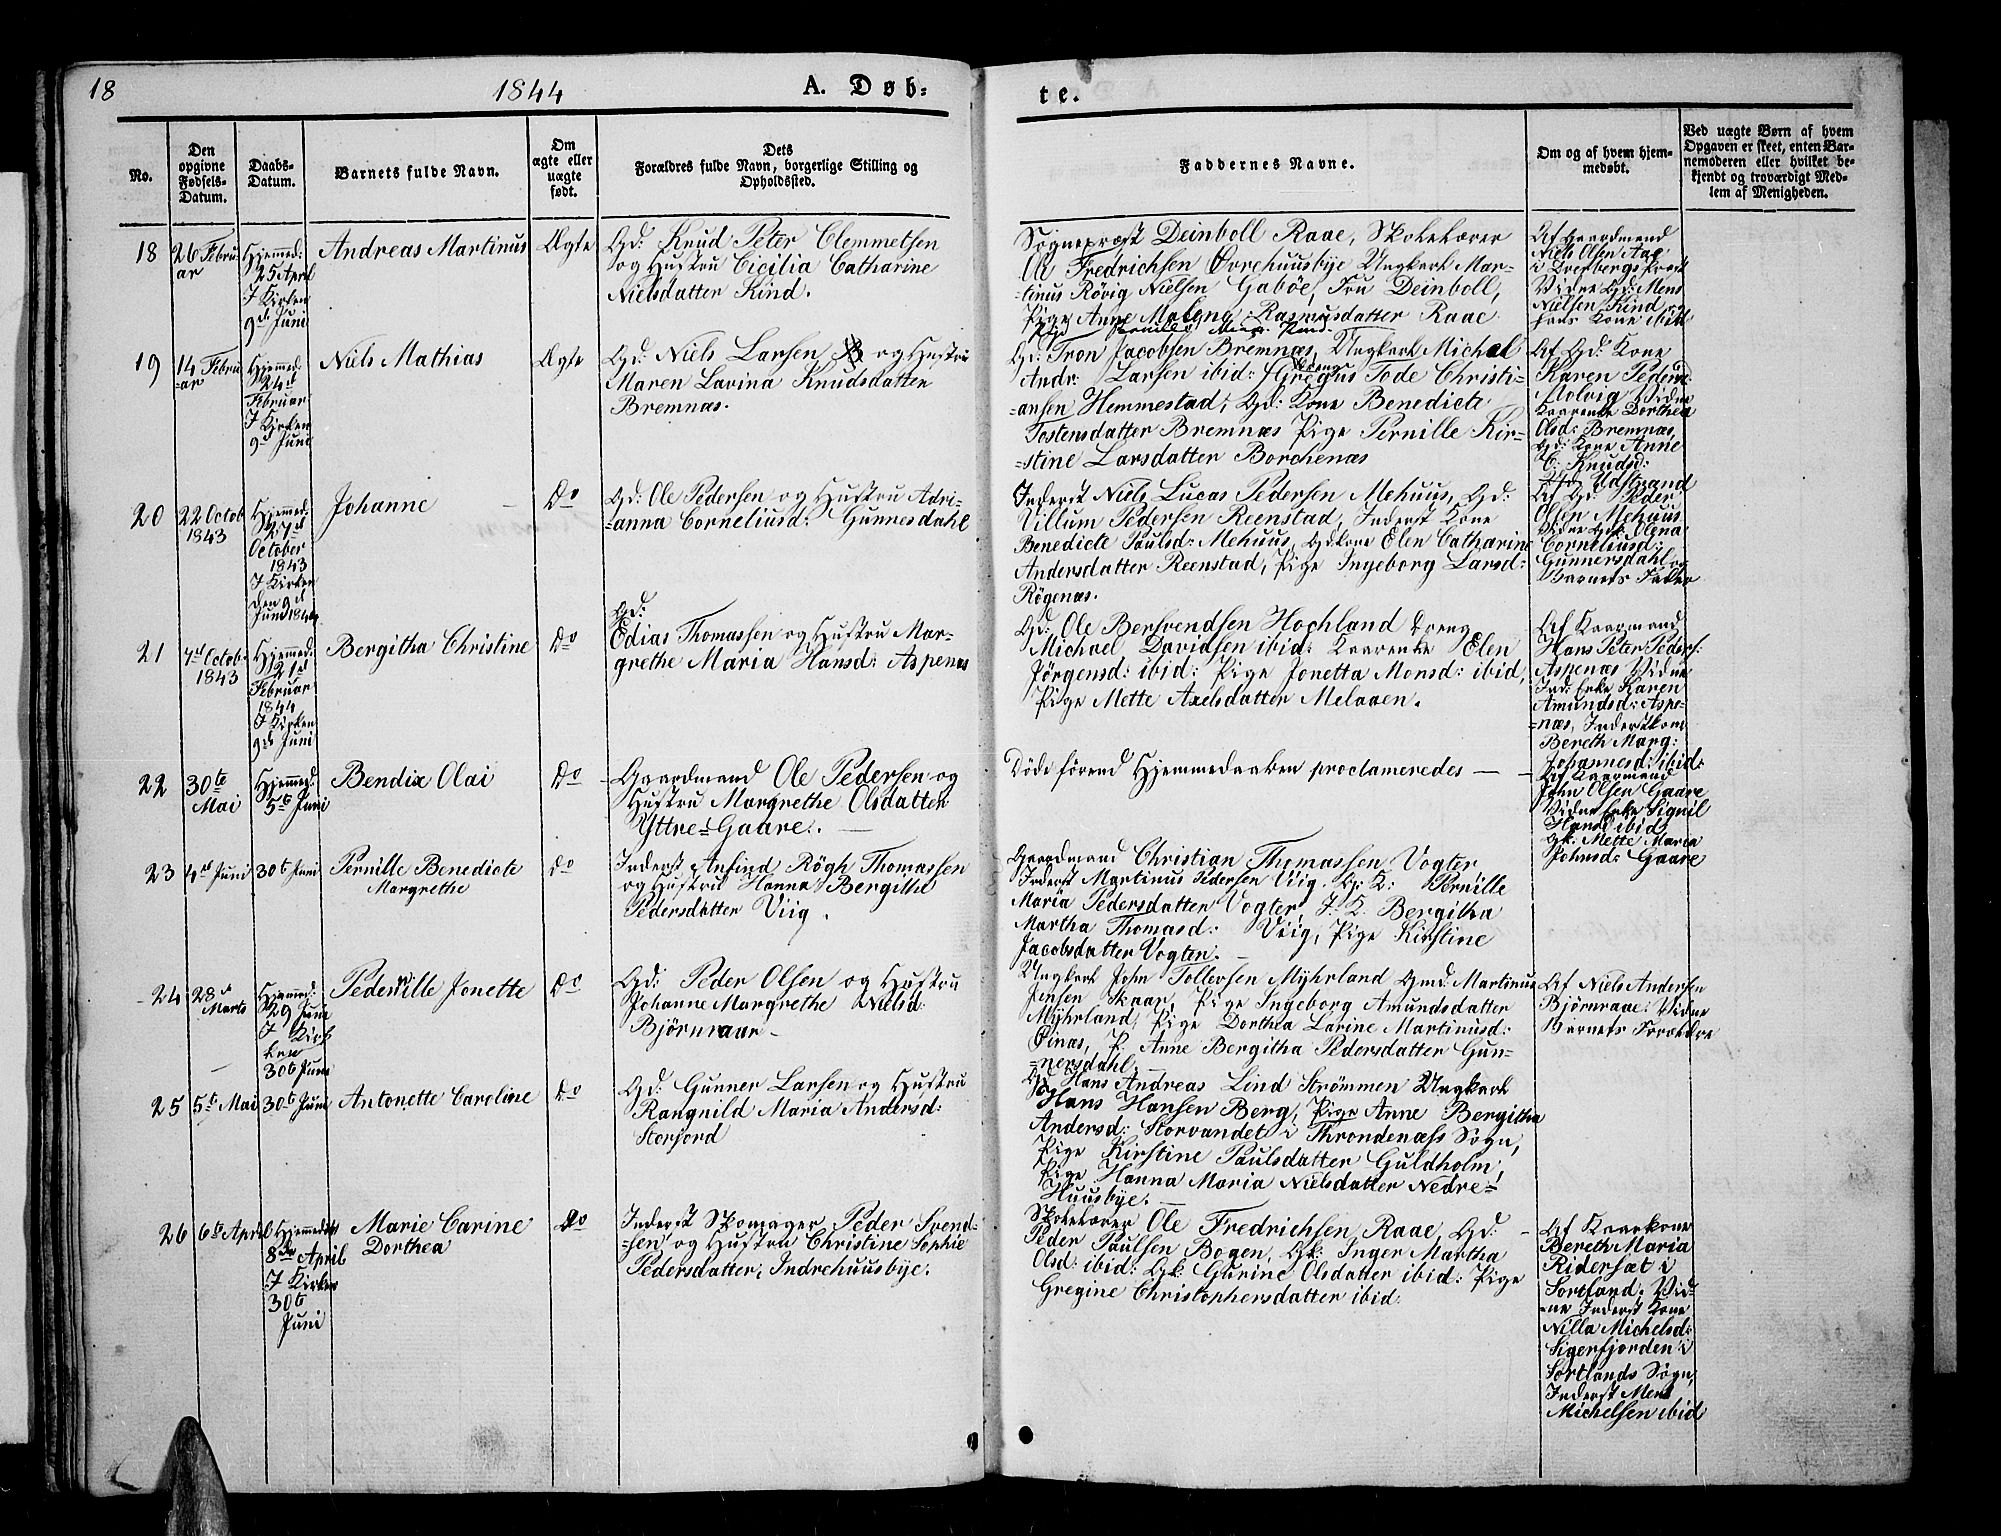 18
1844
A. Døb-
te.
No.
Den
opgivne
Fødsels-
Datum.
Daabs-
Datum.
Barnets fulde Navn.
Om
ægte eller
uægte
født.
Dets
Forældres fulde Navn, borgerlige Stilling og
Opholdssted.
Faddernes Navne.
Om og af hvem hjem-
medøbt.
Ved uægte Børn af hvem
Opgaven er skeet, enten Bar-
nemoderen eller hvilket be-
kjendt og troværdigt Med-
lem af Menigheden.
18
26 Febru
ar
Hjemmed:
25 April
I Kirken
9d Juni
Andreas Martinus
Ægte
Gd: Knud Peter Clemmetsen
og Hustru Cicilia Catharine
Nielsdatter Kind.
Sognepræst Deinboll Raae, Skolelærer
Ole Fredrichsen Øvrehuusbye Ungkarl Mar-
-tinus Rövig Nielsen Gaböe, Fru Deinboll,
Pige Anne Malene Rasmusdatter Raae
Af Gaardmand
Niels Olsen Aae
i Præst
Vidne Gd: Mens
Nielsen Kind og
hans Kone ibid
19
14 Febru
-ar
Hjemmed:
24d
Februar
I Kirken
9d Juni
Niels Mathias
Ægte
Gd: Niels Larsen og Hustru
Maren Lavina Knudsdatter
Bremnæs.
Gd: Tron Jacobsen Bremnæs, Ungkarl Michal
Andr: Larsen ibid: Dreng Gregus Tode Christi-
-ansen Hemmestad, Gd: Kone Benedicte
Tostensdatter Bremnæs Pige Pernille Kir-
-stine Larsdatter Borchenæs
Af Gd: Kone
Karen Pedersd
Molvig Vidne
Kaarenke Dorthea
Olsd: Bremnæs,
Gd: Kone Anne
C: Knudsd:
Udstrand
20
22 Octob
1843
Hjemmed:
27d
October
1843
I Kirken
den 9d
Juni 1844
Johanne
Do
Gd: Ole Pedersen og Hustru Adri-
-anna Corneliusd: Gunnesdahl
Inderst Niels Lucas Pedersen Mehuus, Gd:
Villum Pedersen Reenstad, Inderst Kone
Benedicte Paulsd: Mehuus, Gdkone Elen Catharine
Andersdatter Reenstad, Pige Ingeborg Larsd:
Røgenæs.
Af Gd: Peder
Olsen Mehuus
Vidne Gdk: Olena
Corneliusd:
Gunnersdahl og
Barnets Fader
21
7d Octob.
1843
Hjemmed:
21d
Februar
1844
I Kirken
9d Juni
Bergitha Christine
Do
Gd:
Edias Thomassen og Hustru Mar-
grethe Maria Hansd: Aspenæs
Gd: Ole Bersvendsen Hochland Dreng
Michael Davidsen ibid: Kaarenke Elen
Jörgensd: ibid: Pige Jonetta Monsd: ibid,
Pige Mette Axelsdatter Melaaen.
Af Kaarmand
Hans Peter Peders:
Aspenæs Vidne
Ind: Enke Karen
Amundsd: Aspe-
-næs, Inderstkone
Bereth Marg:
Johannesd: ibid:
22
30te
Mai
Hjemmed:
5te Juni
Bendix Olai
Do
Gaardmand Ole Pedersen og
Hustru Margrethe Olsdatter
Yttre-Gaare.
Döde förend Hjemmedaaben proclameredes
Af Kaarmand
John Olsen Gaare
Vidne Enke Signil
Hansd ibid
Gk: Mette Maria
Johnsd: Gaare
23
4d Juni
30t Juni
Pernille Benedicte
Margrethe
Do
Inderst Anfind Rögh Thomassen
og Hustru Hanna Bergitha
Pedersdatter Viig.
Gaardmand Christian Thomassen Vogter
Inderst Martinus Pedersen Viig. Gd: K: Pernille
Maria Pedersdatter Vogter, I. K. Bergitha
Martha Thomasd: Viig, Pige Kirstine
Jacobsdatter Vogter.
24
28d
Marts
Hjemmed:
29 Juni
I Kirk
ken
30t Juni
Pedernille Jonette
Do
Gd: Peder Olsen og Hustru
Johanne Margrethe Nielsd:
Björnraae
Ungkarl John Tollevsen Myhrland Gmd: Martinus
Jensen Skaar, Pige Ingeborg Amundsdatter
Myhrland, Pige Dorthea Larine Martinusd:
Öinæs, P. Anne Bergitha Pedersdatter Gun-
-nersdahl.
Af Niels Andersen
Björnraae: Vidne
Barnets Forældre
25
5t Mai
30t Juni
Antonette Caroline
Do
Gd: Gunner Larsen og Hustru
Rangnild Maria Andersd:
Storfjord
Gd: Hans Andreas Lind Strömmen Ungkarl
Hans Hansen Berg, Pige Anne Bergitha
Andersd: Storvandet i Throndenæss Sogn,
Pige Kirstine Paulsdatter Guldholm,
Pige Hanna Maria Nielsdatter Nedre-
Huusbye.
26
6te April
Hjemmedøbt
8de April
I Kirken
30t
Juni
Marie Carine
Dorthea
Do
Inderst Skomager Peder Svend-
-sen og Hustru Christine Sophie
Pedersdatter, Indrehuusbye.
Skolelærer Ole Fredrichsen Raae, Gd:
Peder Paulsen Bogen, Gk: Inger Martha
Olsd: ibid: Gk: Gurine Olsdatter ibid: Pige
Gregine Christophersdatter ibid:
Af Kaarkone
Bereth Maria
Ridersæt i
Sortland, Vid-
-ne Inderst Kone
Nilla Michelsd:
Sigerfjorden i
Sortlands Sogn,
Inderst Mens
Michelsen ibid